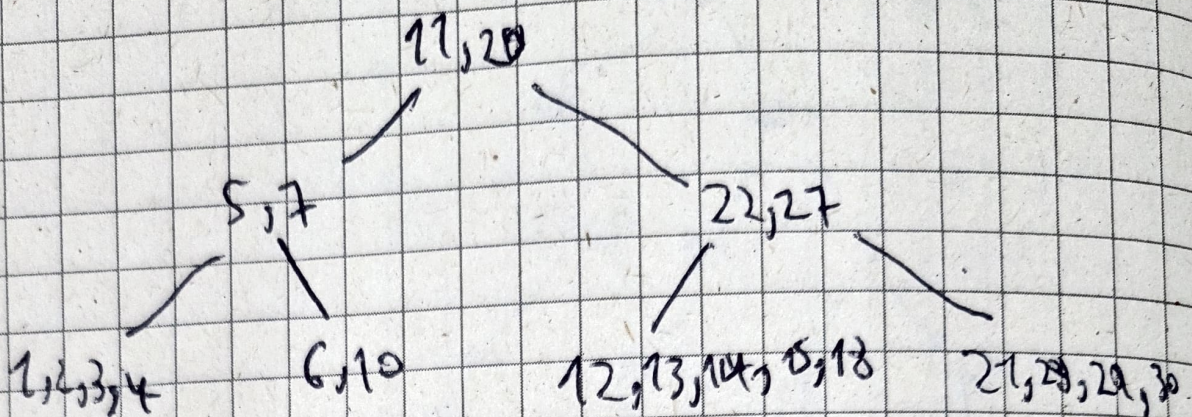 11,20
5,7 22,27
1,2,3,4 6,10 12,13,14,15,18 21,28,29,30